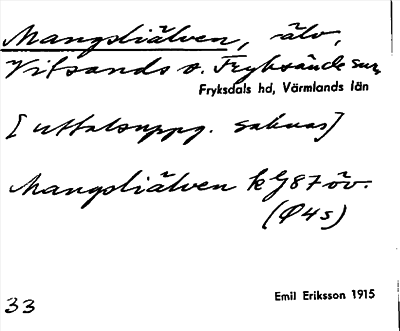 Mangsliälven, älv,
Vitsands o. Fryksände snr,
Fryksdals hd, Värmlands län
[uttalsuppg. saknas]
Mangsliälven kG87öv.
(Ø4s)
33
Emil Eriksson 1915